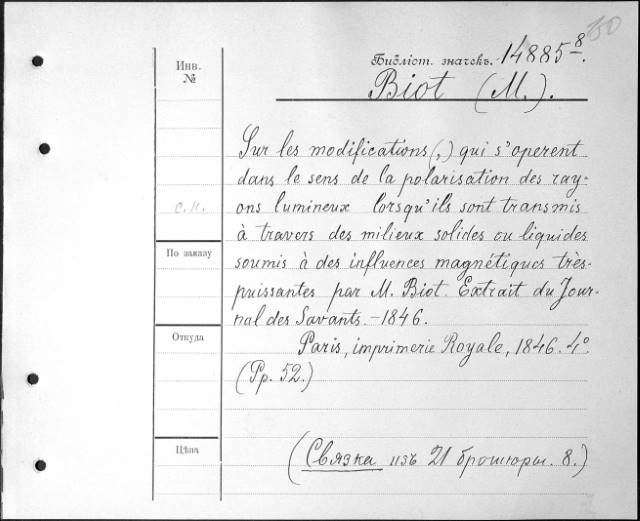 150
Инв.
№
Библіот. значекъ. 14885⁸.
Biot (M.).
Sur les modifications (,) qui s'operent
dans le sens de la polarisation des ray-
с.п.
ons lumineux lorsqu'ils sont transmis
à travers des milieux solides ou liquides
По заказу
soumis à des influences magnétiques très-
puissantes par M. Biot. Extrait du Jour-
nal des Savants. - 1846.
Откуда
Paris, imprimerie Royale, 1846. 4°
(Pp. 52.)
Цѣна
(Связка изъ 21 брошюры. 8.)